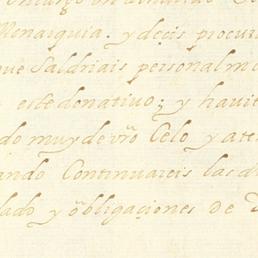 Monarquia. y deçis procur
que Saldriais personalm
este donativo; y havie
do muy de vrõ Celo y ate
ando Continuareis las d
lado y obligaçiones de